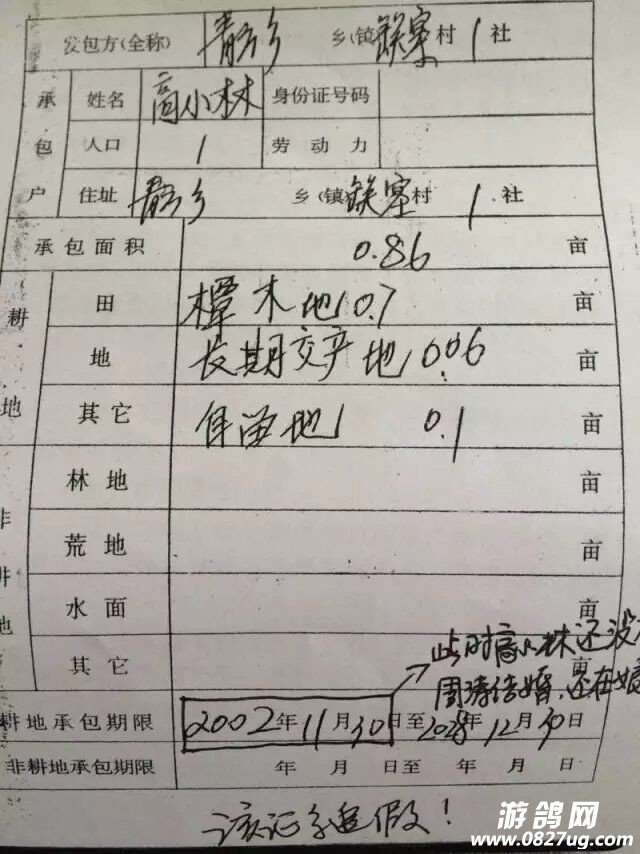 发包方(全称) 青乡 乡(镇) 铁寨 村 1 社
承包户 姓名 高小林 身份证号码
人口 1 劳动力
住址 青乡 乡(镇) 铁寨 村 1 社
承包面积 0.86 亩
耕地 田 樟木地1 0.7 亩
地 长期交产地1 0.06 亩
其它 自留地1 0.1 亩
非耕地 林地 亩
荒地 亩
水面 亩
其它 亩
此时高小林还没
周 结婚,还在娘
耕地承包期限 2002年11月30日至2028年12月30日
非耕地承包期限 年 月 日至 年 月 日
该记录造假!
游鸽网
www.0827ug.com